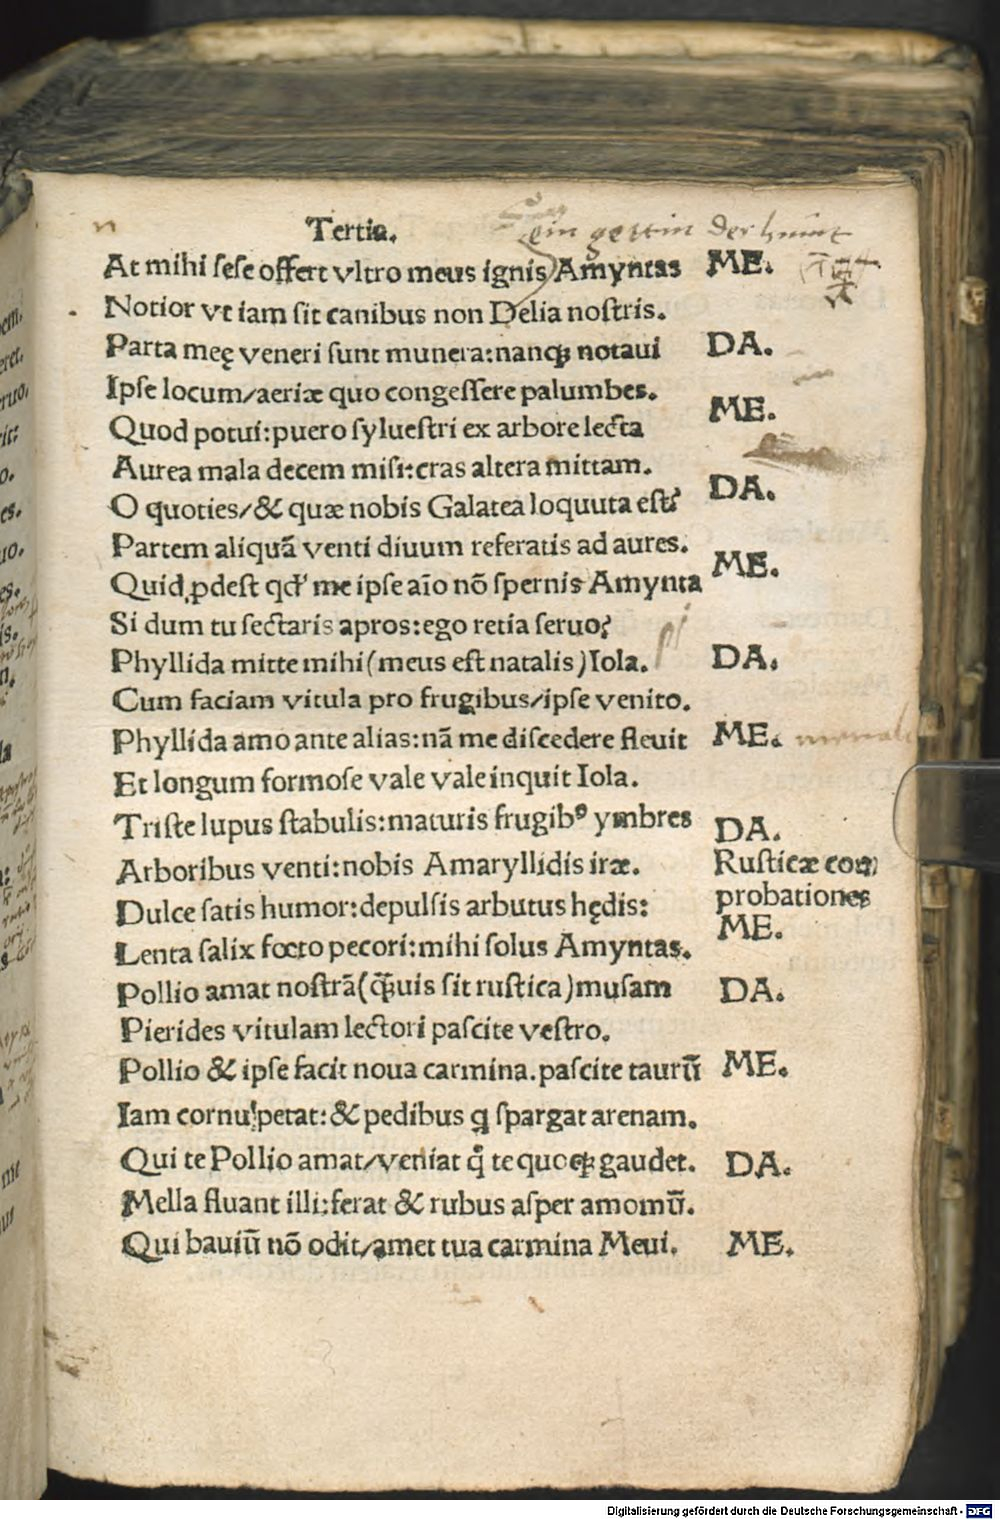 Tertia.
ein gettin der hunt
At mihi sese offert vltro meus ignis Amyntas ME.
Notior vt iam sit canibus non Delia nostris.
Parta meę veneri sunt munera:nanq; notaui DA.
Ipse locum/aeriæ quo congessere palumbes.
Quod potui:puero syluestri ex arbore lecta ME.
Aurea mala decem misi:cras altera mittam.
O quoties/& quæ nobis Galatea loquuta est? DA.
Partem aliquā venti diuum referatis ad aures.
Quid ꝓdest qd' me ipse aīo nō spernis Amynta ME.
Si dum tu sectaris apros:ego retia seruo?
Phyllida mitte mihi(meus est natalis)Iola. DA.
Cum faciam vitula pro frugibus/ipse venito.
Phyllida amo ante alias:nā me discedere fleuit ME.
Et longum formose vale vale inquit Iola.
Triste lupus stabulis:maturis frugibꝰ ymbres DA.
Arboribus venti:nobis Amaryllidis iræ. Rusticæ com
Dulce satis humor:depulsis arbutus hędis: probationes
Lenta salix foeto pecori:mihi solus Amyntas. ME.
Pollio amat nostrā(q̄uis sit rustica)musam DA.
Pierides vitulam lectori pascite vestro.
Pollio & ipse facit noua carmina.pascite taurū ME.
Iam cornu petat:& pedibus q spargat arenam.
Qui te Pollio amat/veniat q̊ te quoq; gaudet. DA.
Mella fluant illi:ferat & rubus asper amomū.
Qui bauiū nō odit/amet tua carmina Meui. ME.
Digitalisierung gefördert durch die Deutsche Forschungsgemeinschaft - DFG